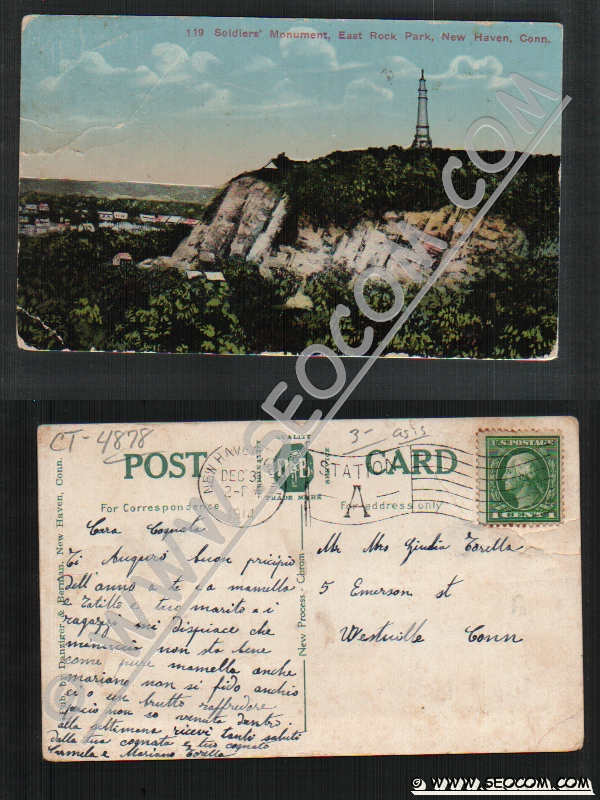 119 Soldiers' Monument, East Rock Park, New Haven, Conn.
WWW.SEOCOM.COM
CT-4878
3- asis
POST CARD
QUALITY
TRADE MARK
NEW HAVEN
DEC 31
STATION
A
U.S. POSTAGE
1 CENT 1
For Correspondence
For address only
Cara Cognata
Ti Auguro buon pricipio
dell'anno a te e a mamella
e Tatillo e tuo marito a i
ragazzi mi dispiace che
non sta bene
come pure mamella anche
mariano non si fido anchio
ci o un brutto raffredore
percio non so venuta dentro
alla settimana ricevi tanti saluti
dalla tua cognata e tuo cognato
Carmela e Mariano Torella
Mr Mrs Giulia Torella
5 Emerson st
Westville Conn
New Process - Chrom
Pub. by Danziger & Berman, New Haven, Conn.
© WWW.SEOCOM.COM ©